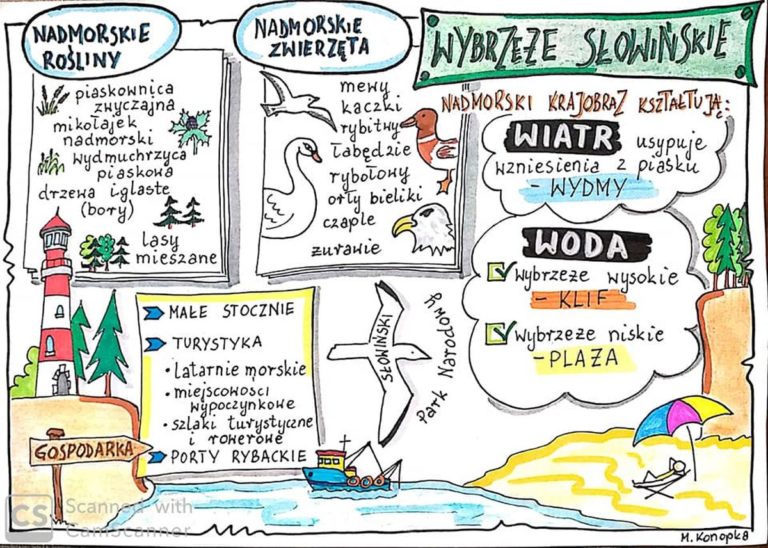 NADMORSKIE
ROŚLINY
piaskownica
zwyczajna
mikołajek
nadmorski
wydmuchrzyca
piaskowa
drzewa iglaste
(bory)
lasy
mieszane
NADMORSKIE
ZWIERZĘTA
mewy
kaczki
rybitwy
łabędzie
rybołowy
orły bieliki
czaple
żurawie
WYBRZEŻE SŁOWIŃSKIE
NADMORSKI KRAJOBRAZ KSZTAŁTUJĄ:
WIATR usypuje
wzniesienia z piasku
- WYDMY
WODA
wybrzeże wysokie
- KLIF
wybrzeże niskie
- PLAŻA
GOSPODARKA
MAŁE STOCZNIE
TURYSTYKA
• latarnie morskie
• miejscowości
wypoczynkowe
• szlaki turystyczne
i rowerowe
PORTY RYBACKIE
SŁOWIŃSKI
Park Narodowy
CS Scanned with
CamScanner
M. Konopka